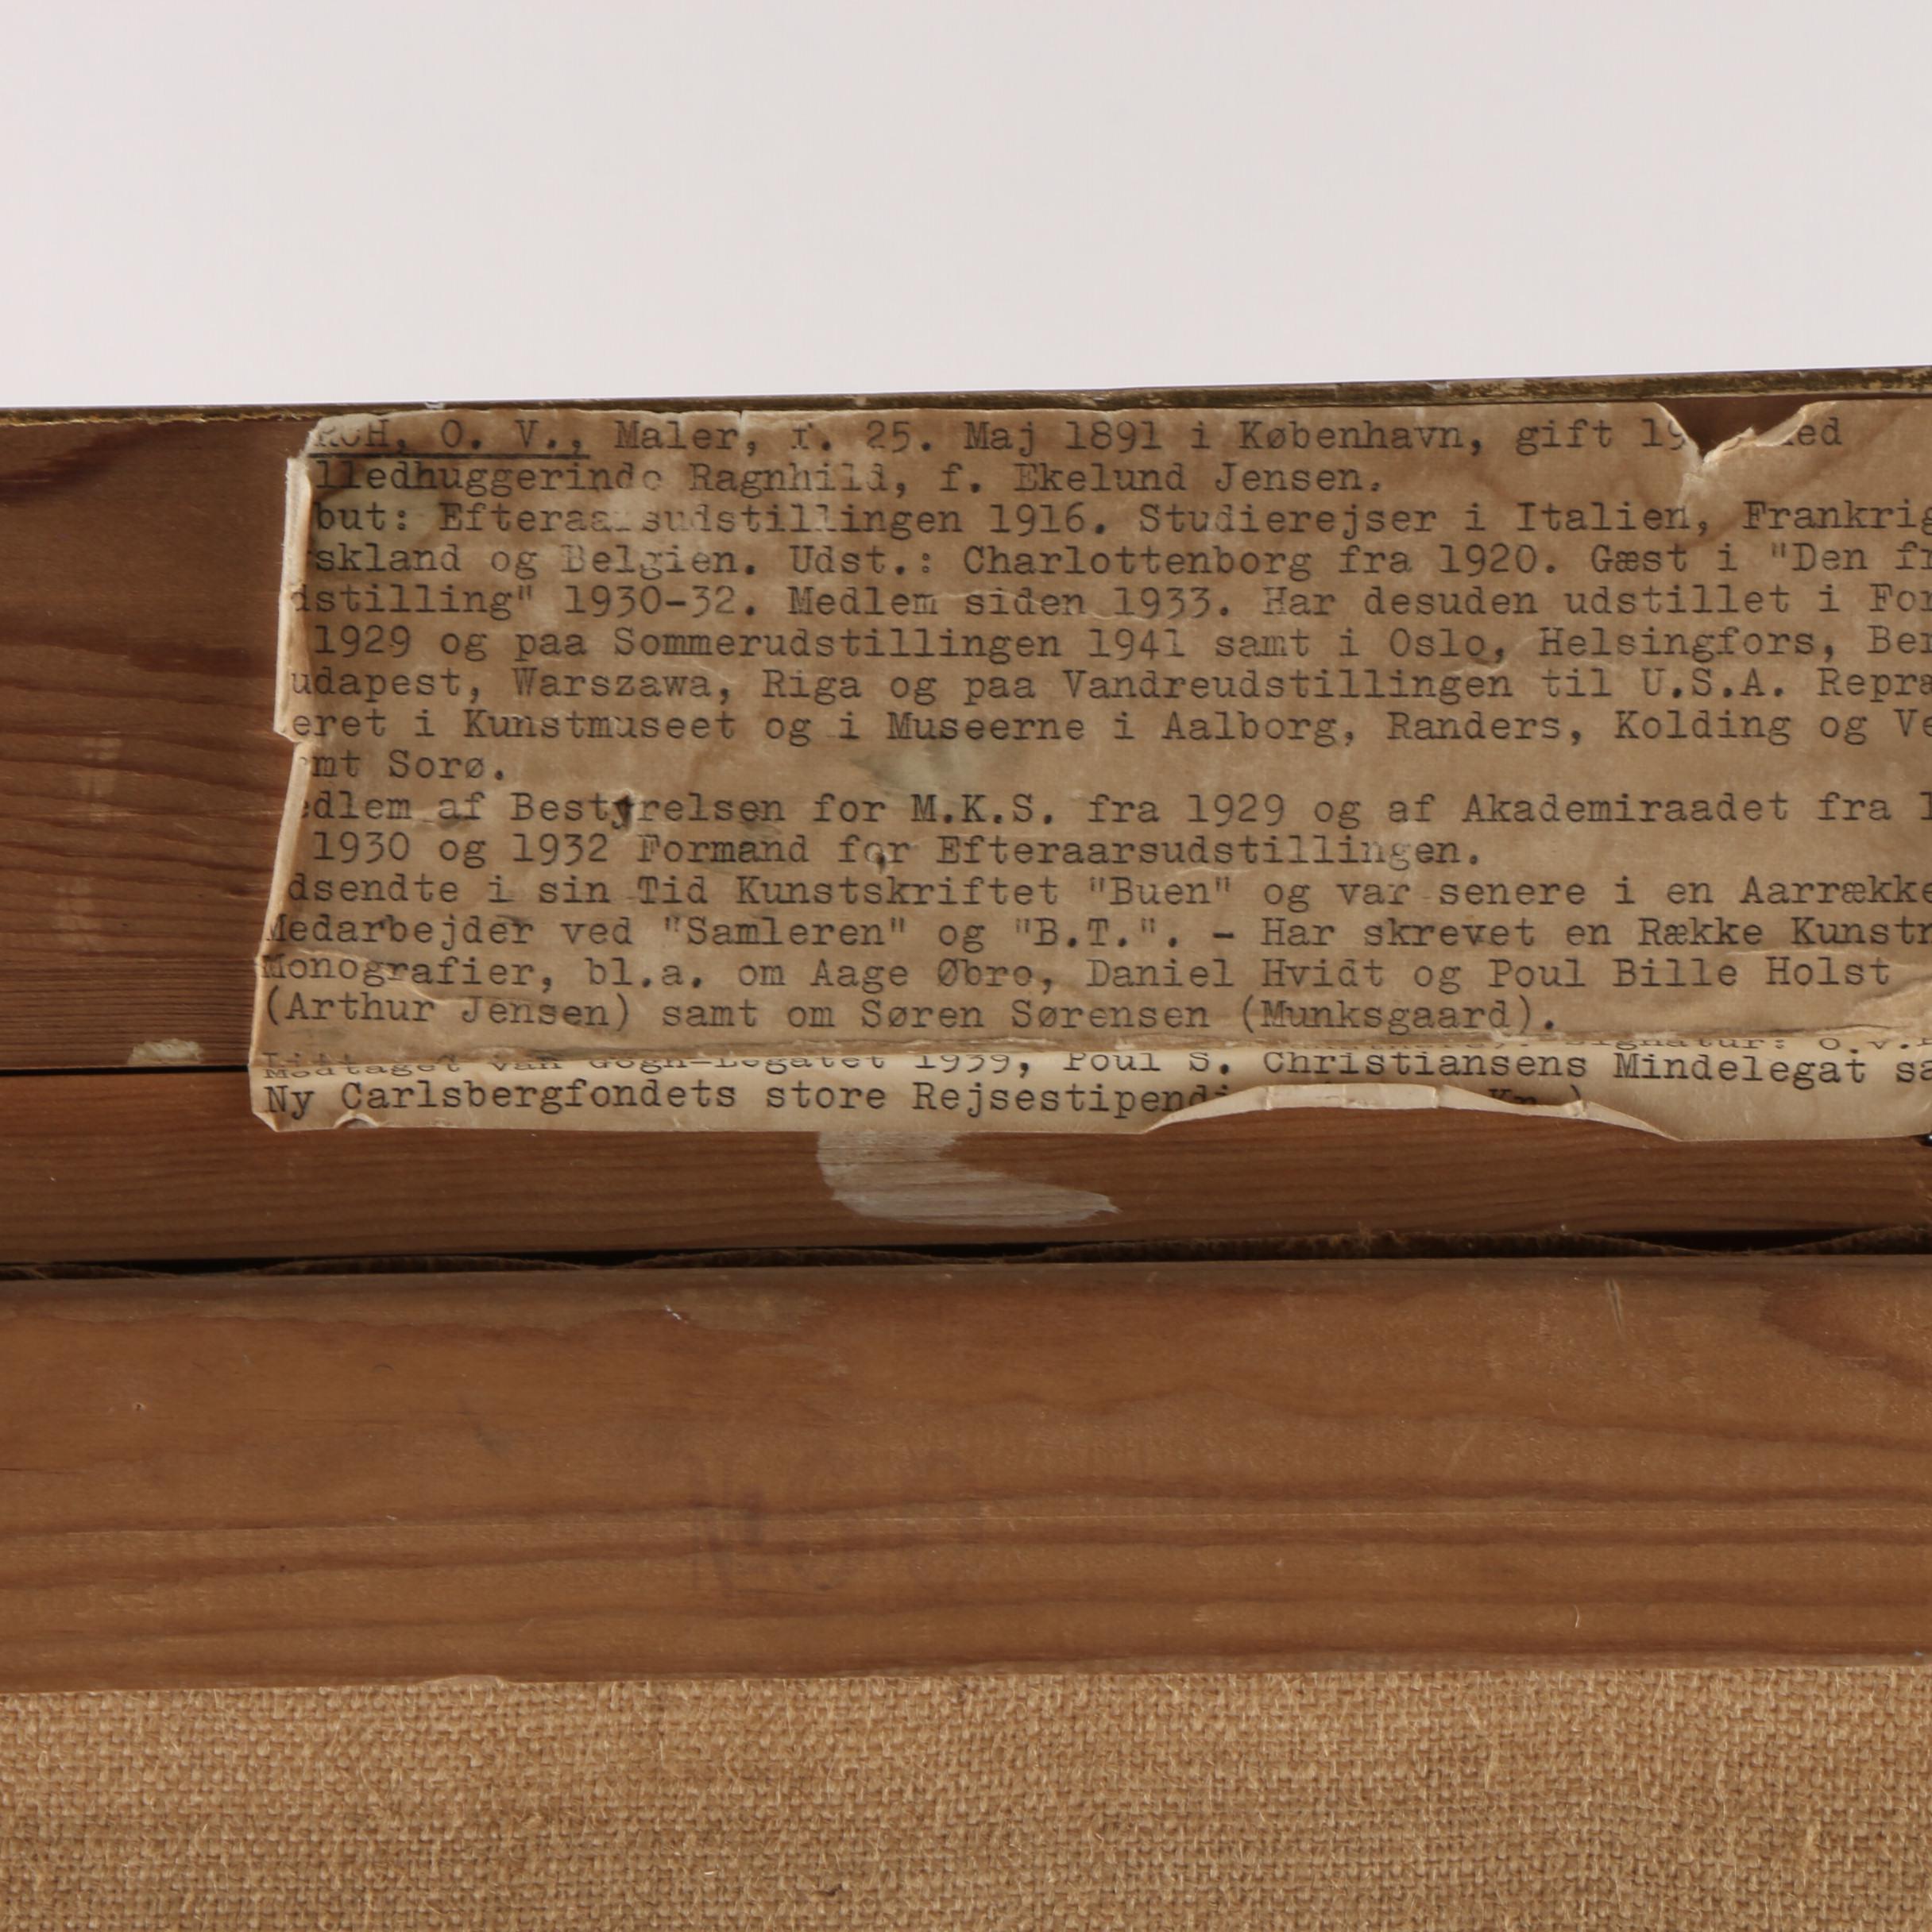 RCH, O. V., Maler, f. 25. Maj 1891 i København, gift 19 ed
lledhuggerinde Ragnhild, f. Ekelund Jensen.
but: Efteraarsudstillingen 1916. Studierejser i Italien, Frankrig
skland og Belgien. Udst.: Charlottenborg fra 1920. Gæst i "Den fr
dstilling" 1930-32. Medlem siden 1933. Har desuden udstillet i For
1929 og paa Sommerudstillingen 1941 samt i Oslo, Helsingfors, Ber
udapest, Warszawa, Riga og paa Vandreudstillingen til U.S.A. Repræ
eret i Kunstmuseet og i Museerne i Aalborg, Randers, Kolding og Ve
mt Sorø.
edlem af Bestyrelsen for M.K.S. fra 1929 og af Akademiraadet fra 1
1930 og 1932 Formand for Efteraarsudstillingen.
dsendte i sin Tid Kunstskriftet "Buen" og var senere i en Aarrække
Medarbejder ved "Samleren" og "B.T.". - Har skrevet en Række Kunstn
Monografier, bl.a. om Aage Øbro, Daniel Hvidt og Poul Bille Holst
(Arthur Jensen) samt om Søren Sørensen (Munksgaard).
Signatur: O.V.
Modtaget van Gogh-Legatet 1939, Poul S. Christiansens Mindelegat sa
Ny Carlsbergfondets store Rejsestipendi Kr.)